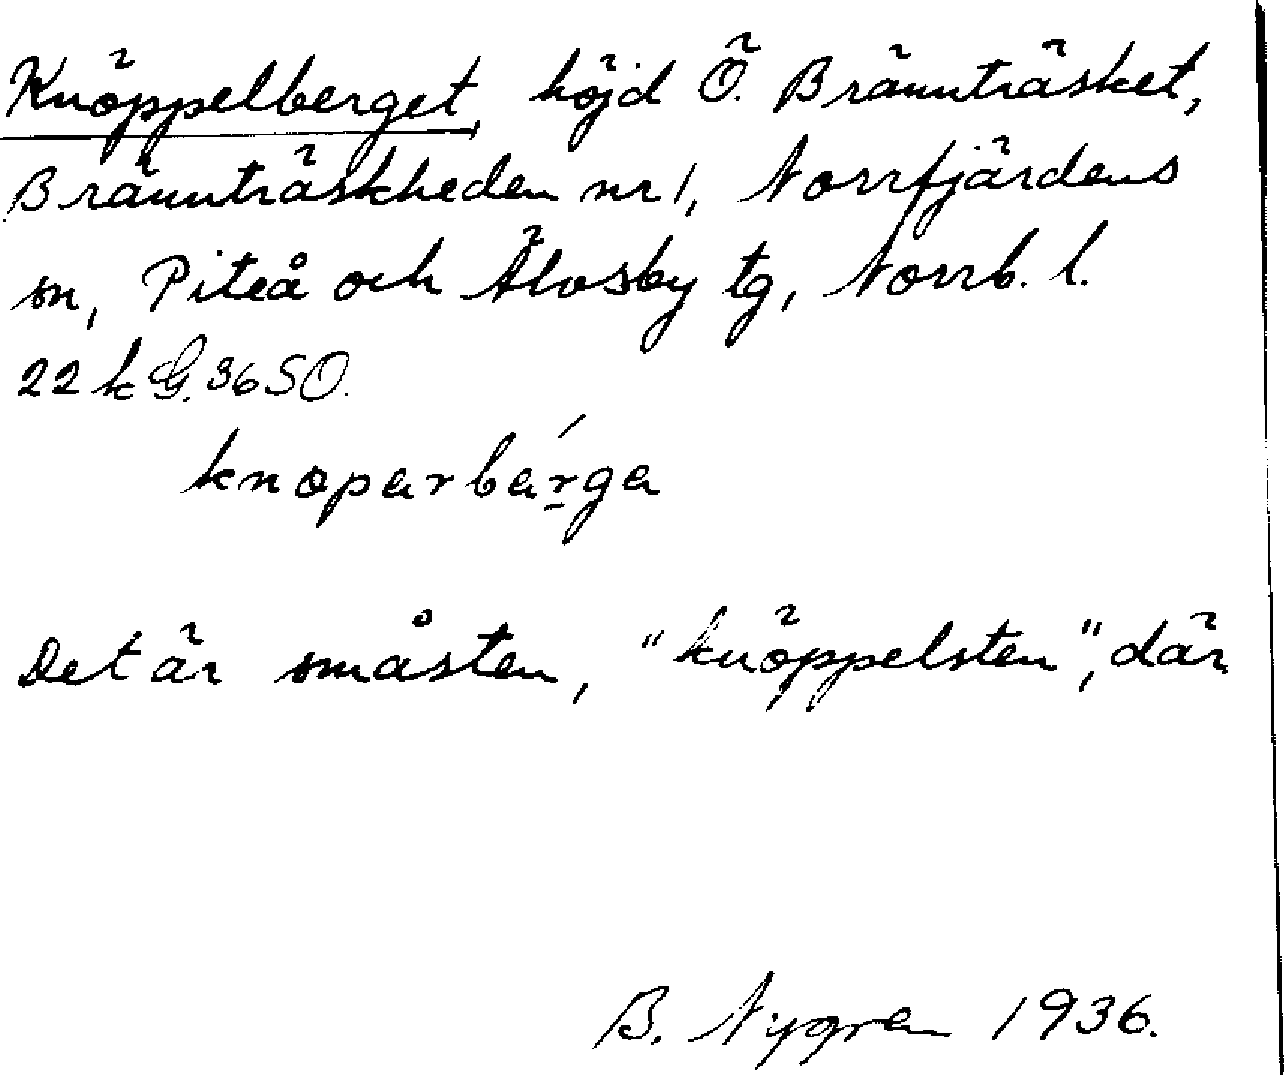 Knöppelberget, höjd Ö. Brännträsket,
Brännträskheden nr 1, Norrfjärdens
sn, Piteå och Älvsby tg, Norrb. l.
22 k G. 36 SO.
knoparbárga
Det är småsten, "knöppelsten", där
B. Nygren 1936.